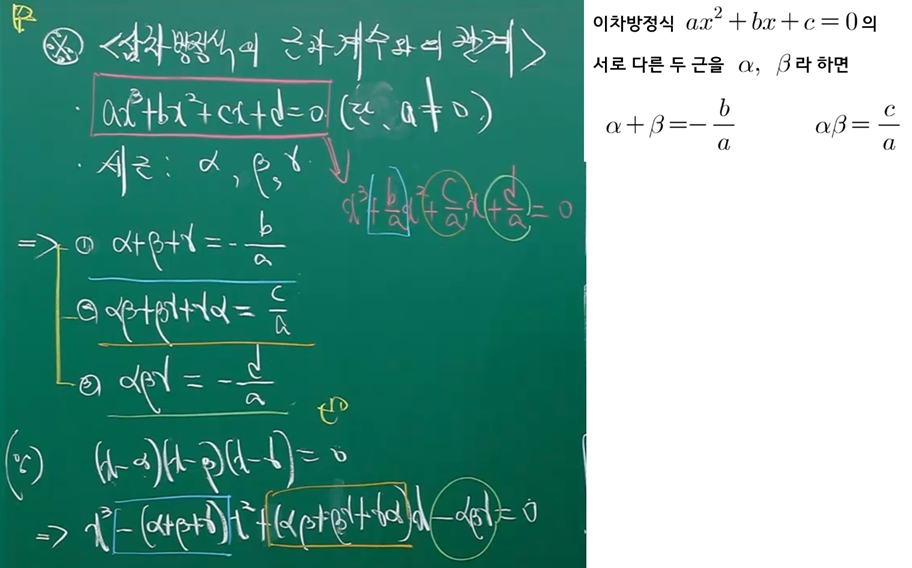 P
※ <삼차방정식의 근과 계수와의 관계>
· ax³+bx²+cx+d=0 (단, a≠0.)
· 세근 : α, β, γ.
x³+b/a x²+c/a x+d/a=0
=> ① α+β+γ=-b/a
② αβ+βγ+γα=c/a
③ αβγ=-d/a
(x-α)(x-β)(x-γ)=0
=> x³-(α+β+γ)x²+(αβ+βγ+γα)x-αβγ=0
이차방정식 ax²+bx+c=0의
서로 다른 두 근을 α, β라 하면
α+β=-b/a αβ=c/a